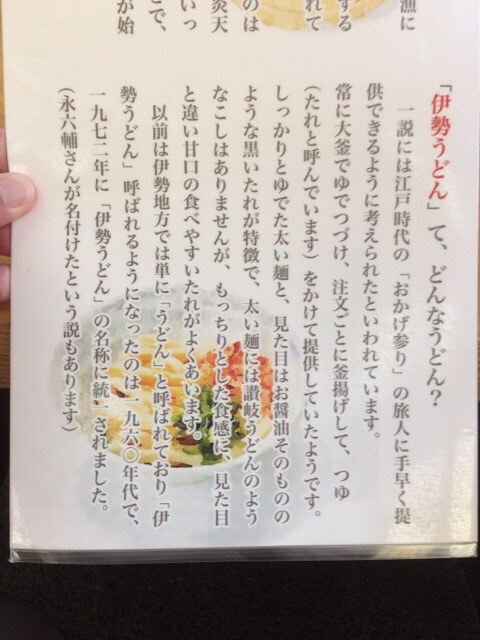 漁に
する
れて
のは
炎天
いっ
こで、
が始
「伊勢うどん」て、どんなうどん？
一説には江戸時代の「おかげ参り」の旅人に手早く提
供できるように考えられたといわれています。
常に大釜でゆでつづけ、注文ごとに釜揚げして、つゆ
（たれと呼んでいます）をかけて提供していたようです。
しっかりとゆでた太い麺と、見た目はお醤油そのものの
ような黒いたれが特徴で、太い麺には讃岐うどんのよう
なこしはありませんが、もっちりとした食感に、見た目
と違い甘口の食べやすいたれがよくあいます。
以前は伊勢地方では単に「うどん」と呼ばれており「伊
勢うどん」呼ばれるようになったのは一九六〇年代で、
一九七二年に「伊勢うどん」の名称に統一されました。
（永六輔さんが名付けたという説もあります）